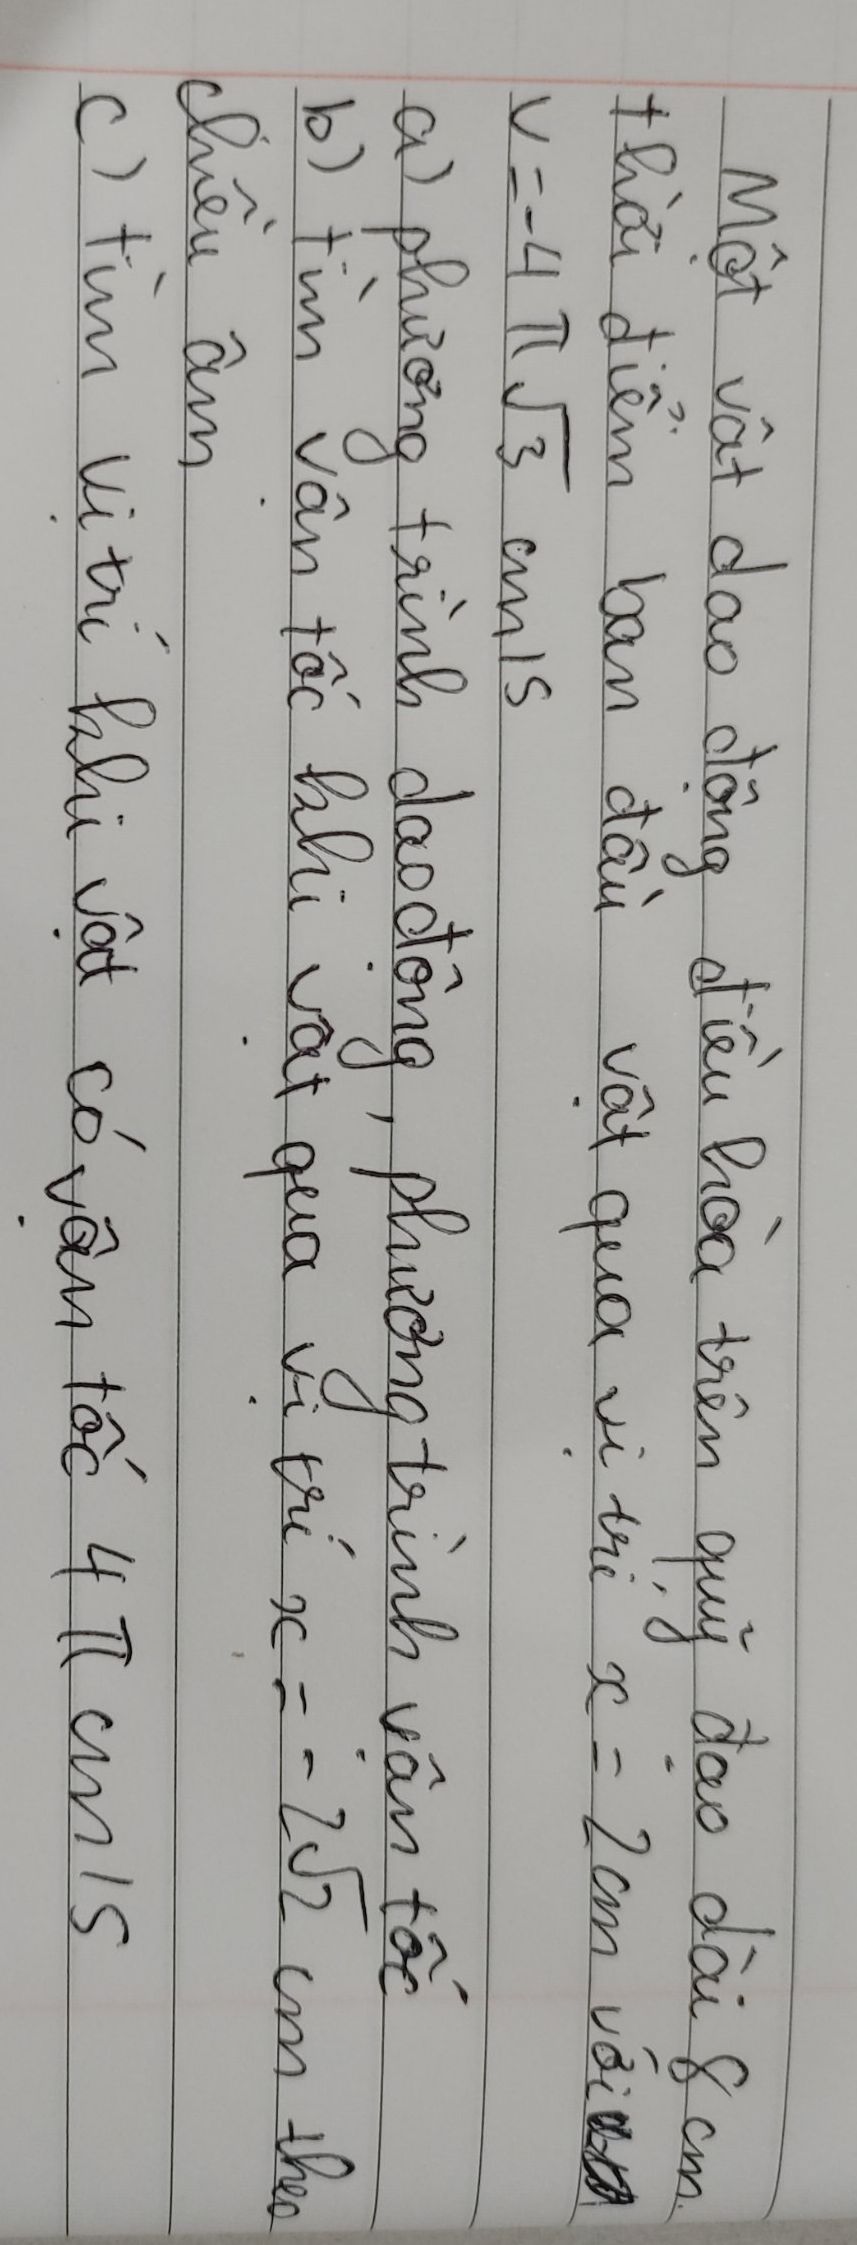 Một vật dao động điều hòa trên quỹ đạo dài 8 cm.
thời điểm ban đầu vật qua vị trí x = 2cm với
v = -4π√3 cm/s
a) phương trình dao động, phương trình vận tốc
b) tìm vận tốc khi vật qua vị trí x = -2√2 cm theo
chiều âm
c) tìm vị trí khi vật có vận tốc 4π cm/s